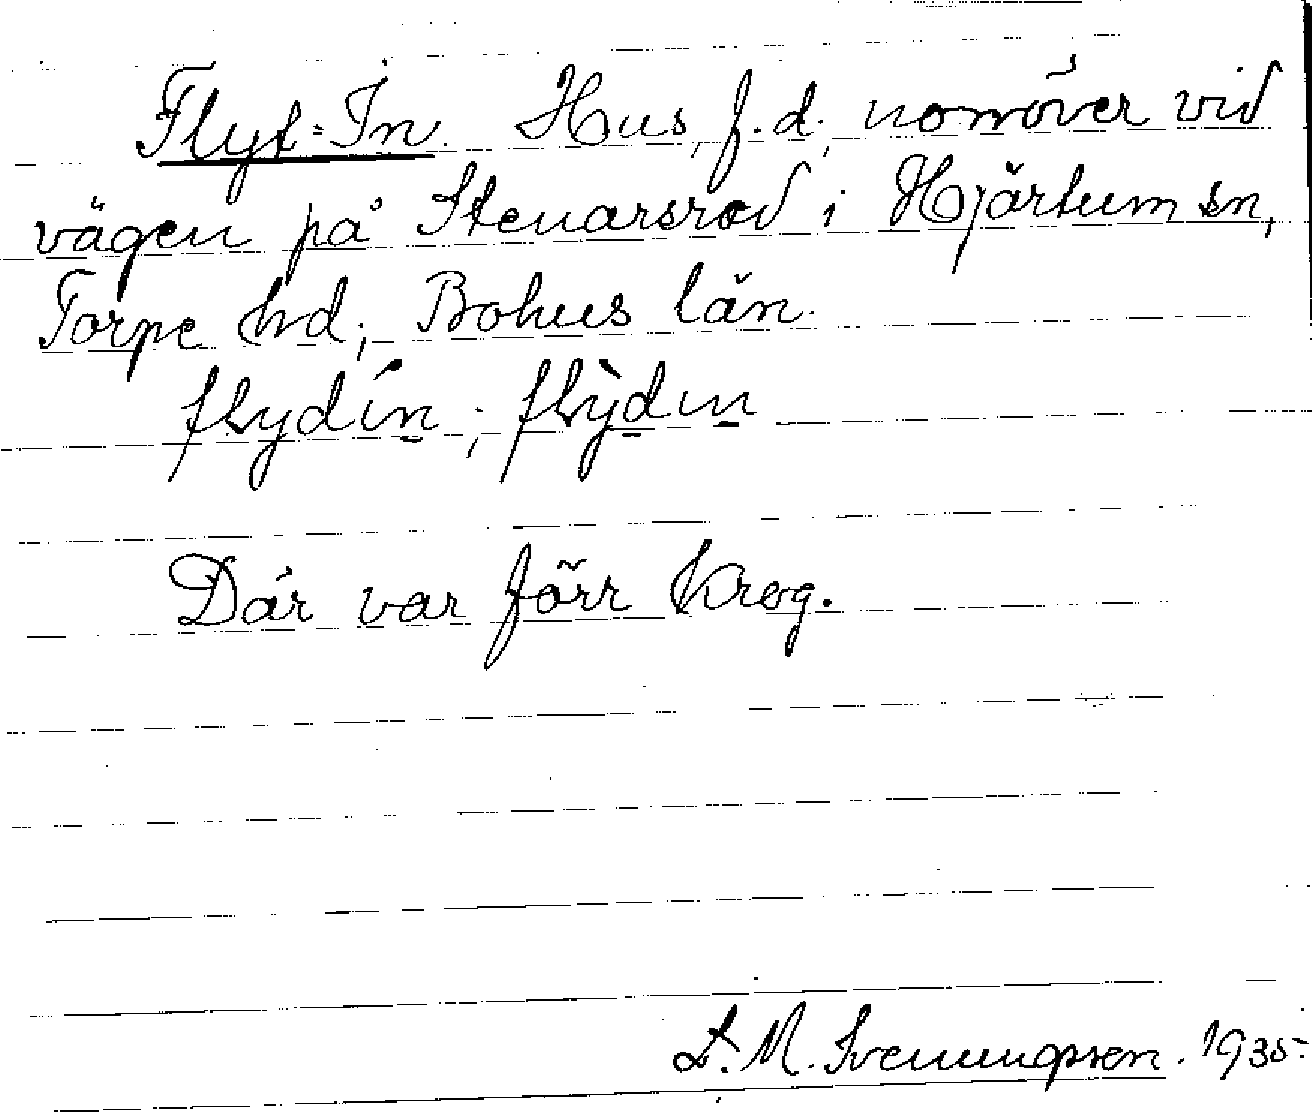 Flyt-In. Hus, f.d., norröver vid
vägen på Stenarsröd i Hjärtum sn,
Torpe hd, Bohus län.
flydín; flỳdın
Där var förr krog.
L. M. Svenungsson. 1935.